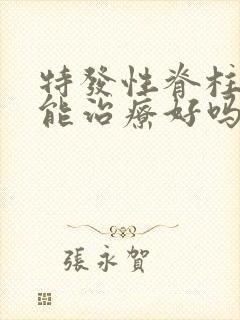 特發性脊柱
能治療好嗎
張永賀